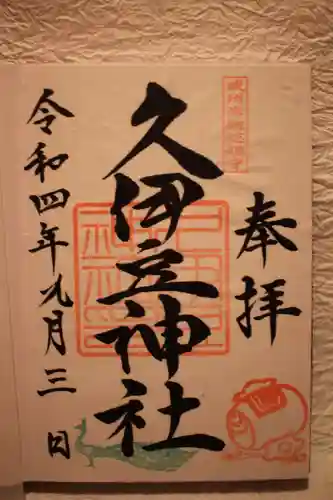 奉拝
久伊豆神社
令和四年九月三日